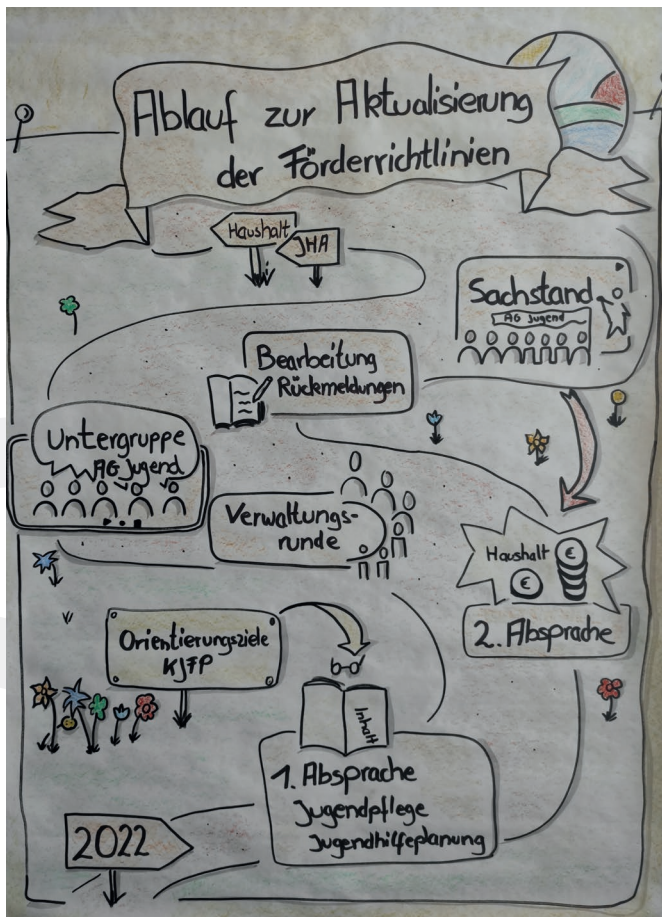 Ablauf zur Aktualisierung
der Förderrichtlinien
Haushalt
JHA
Sachstand
AG Jugend
Bearbeitung
Rückmeldungen
Untergruppe
AG Jugend
Verwaltungs-
runde
Haushalt
€
€
2. Absprache
Orientierungsziele
KJFP
Inhalt
1. Absprache
Jugendpflege
Jugendhilfeplanung
2022